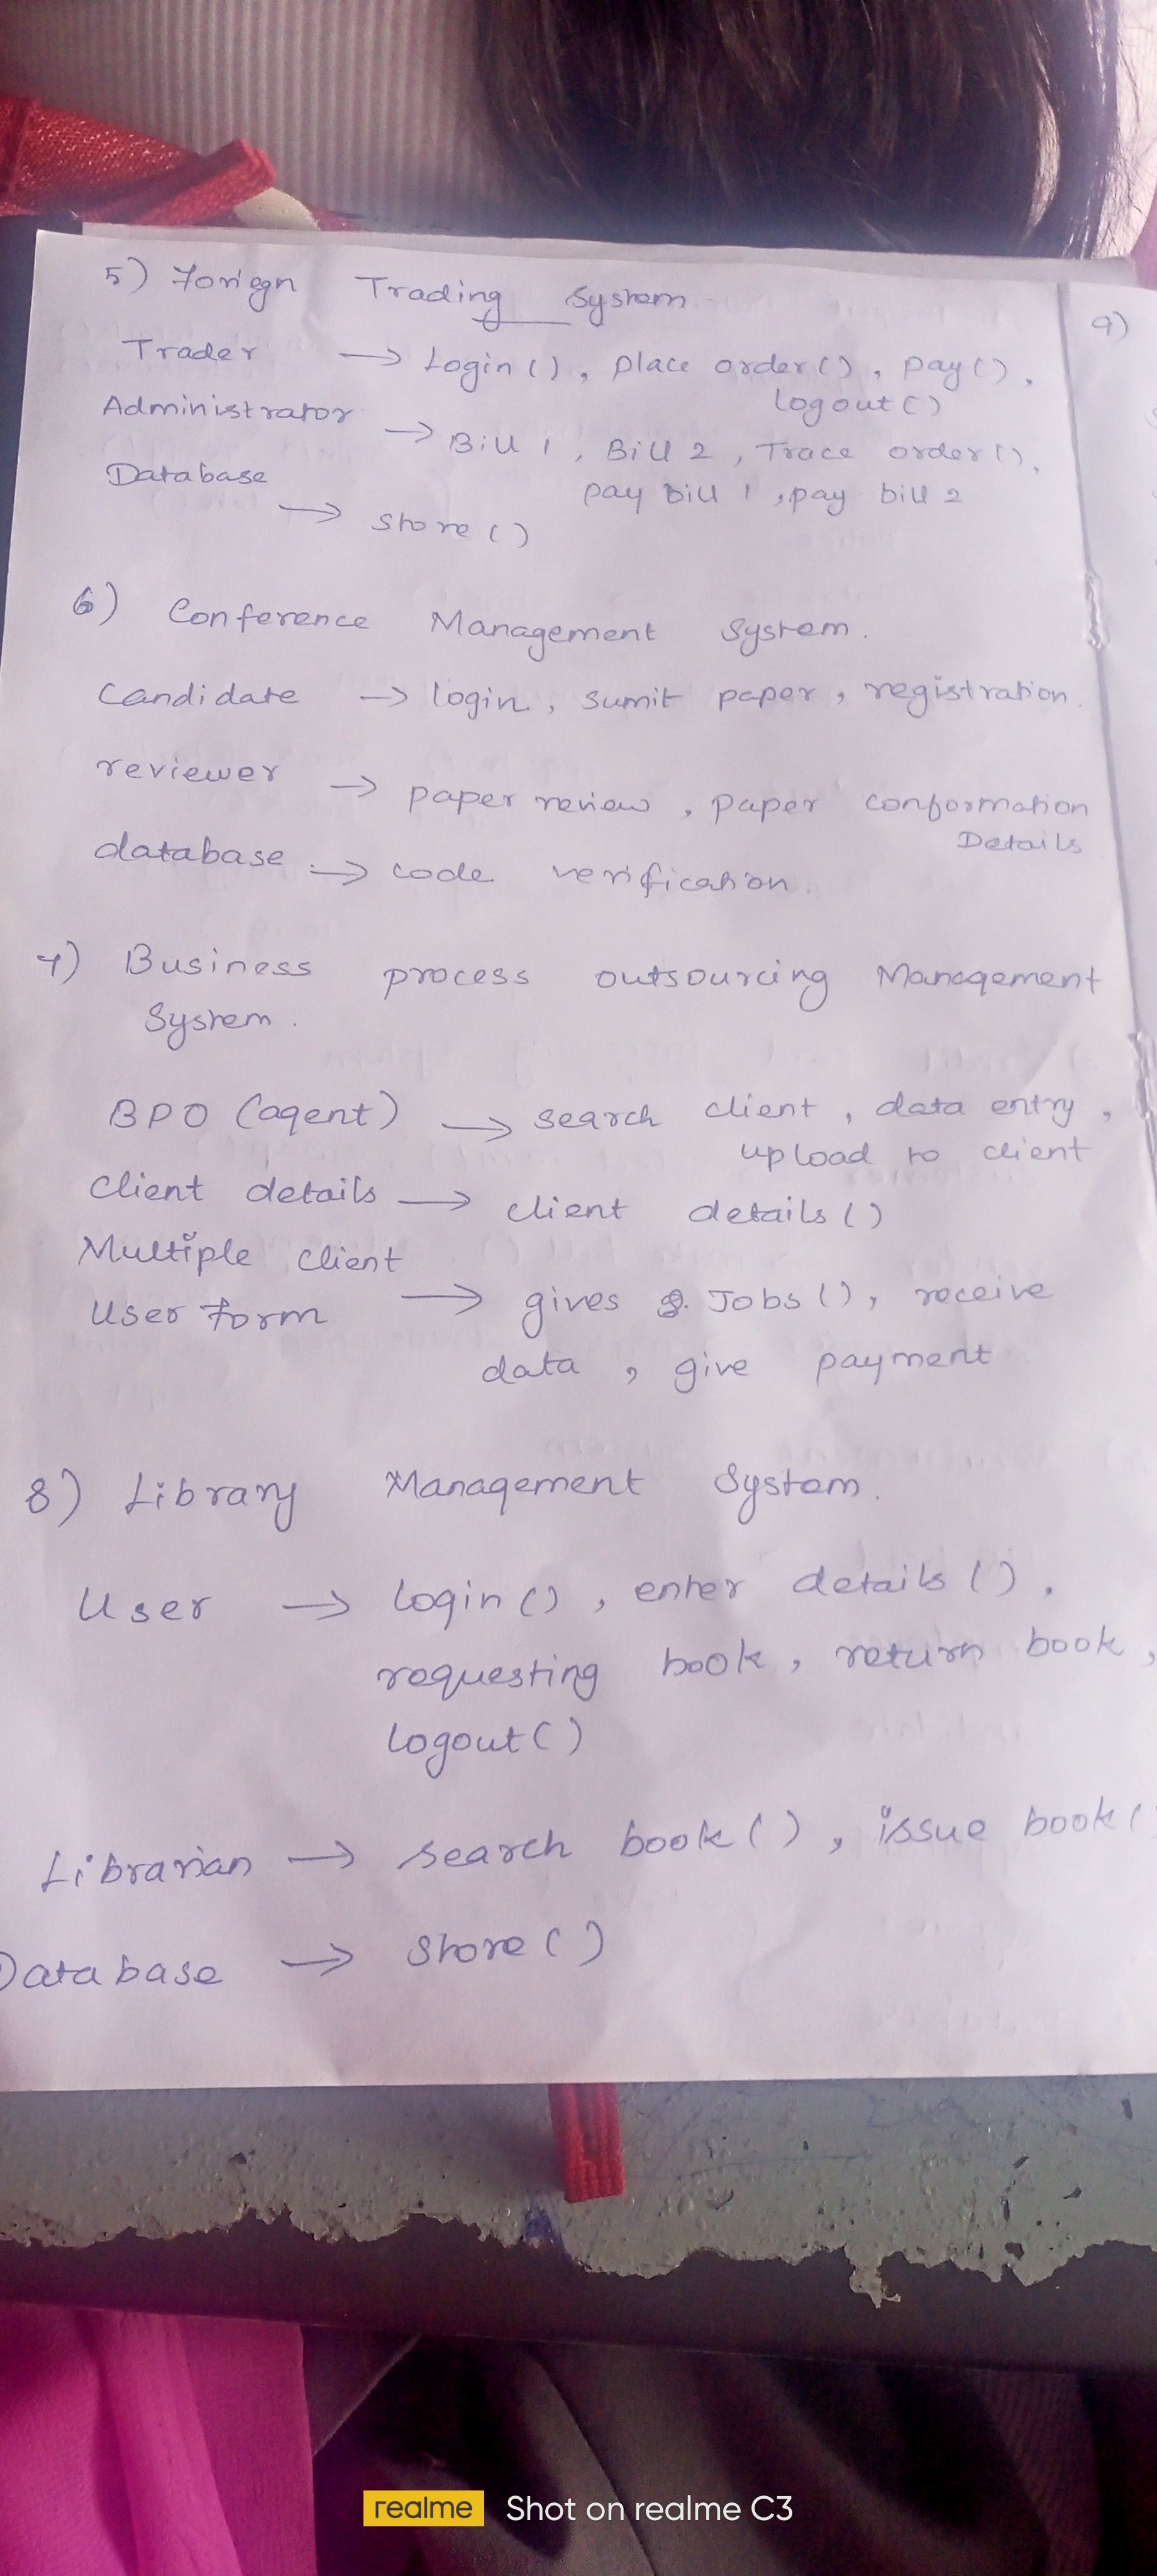 5) Foriegn Trading System
9)
Trader → Login(), place order(), pay(),
logout()
Administrator → Bill 1, Bill 2, Trace order(),
pay bill 1, pay bill 2
Database → store()
6) Conference Management System.
Candidate → login, sumit paper, registration.
reviewer → paper review, paper conformation
Details
database → code verification.
7) Business process outsourcing Management
System.
BPO (agent) → search client, data entry,
upload to client
Client details → client details()
Multiple client
User Form → gives Jobs(), receive
data, give payment
8) Library Management System.
User → login(), enter details(),
requesting book, return book,
logout()
Librarian → search book(), issue book(
Database → Store()
realme Shot on realme C3